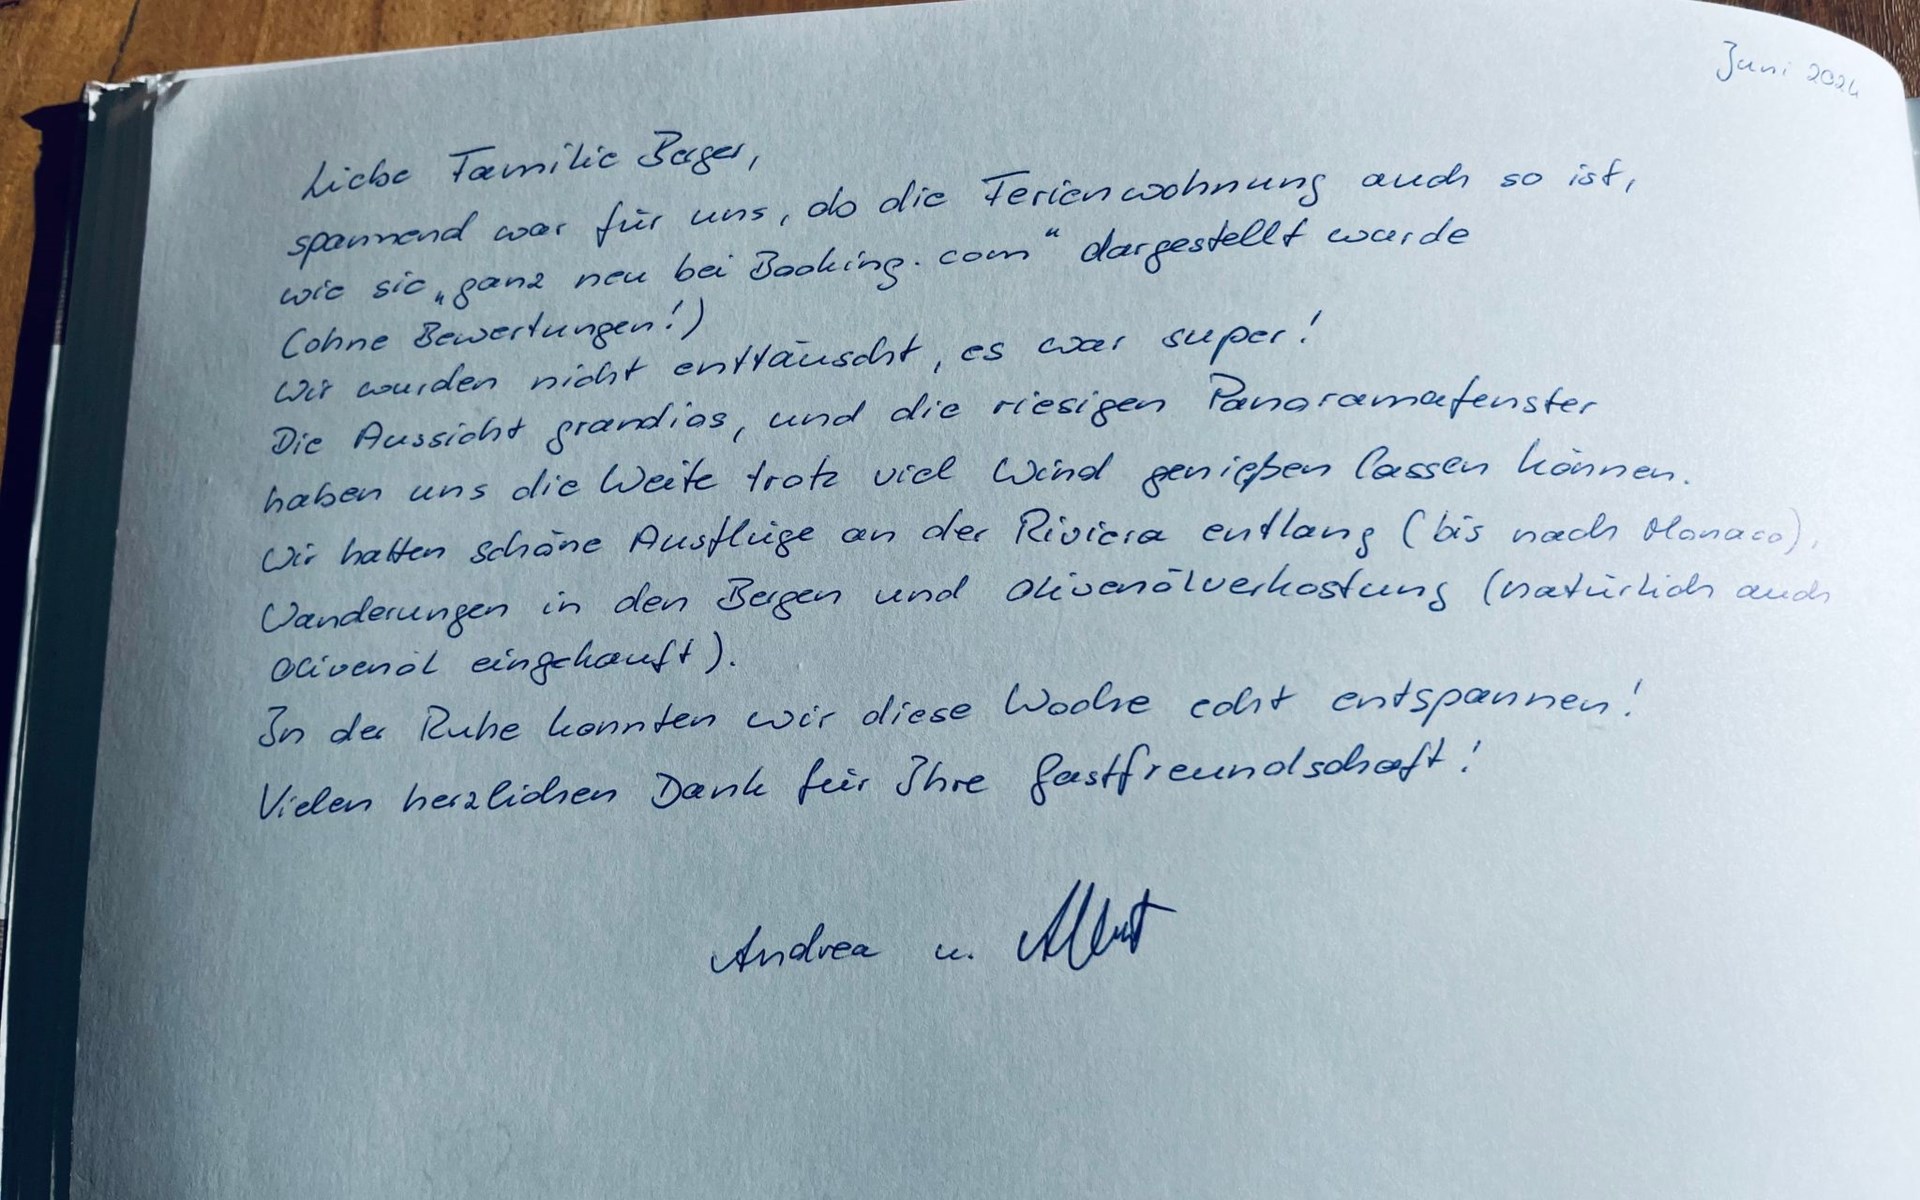 Juni 2024
Liebe Familie Berger,
spannend war für uns, ob die Ferienwohnung auch so ist,
wie sie „ganz neu bei Booking.com" dargestellt wurde
(ohne Bewertungen!)
Wir wurden nicht enttäuscht, es war super!
Die Aussicht grandios, und die riesigen Panoramafenster
haben uns die Weite trotz viel Wind genießen lassen können.
Wir hatten schöne Ausflüge an der Riviera entlang (bis nach Monaco),
Wanderungen in den Bergen und Olivenölverkostung (natürlich auch
Olivenöl eingekauft).
In der Ruhe konnten wir diese Woche echt entspannen!
Vielen herzlichen Dank für Ihre Gastfreundschaft!
Andrea u. Albert